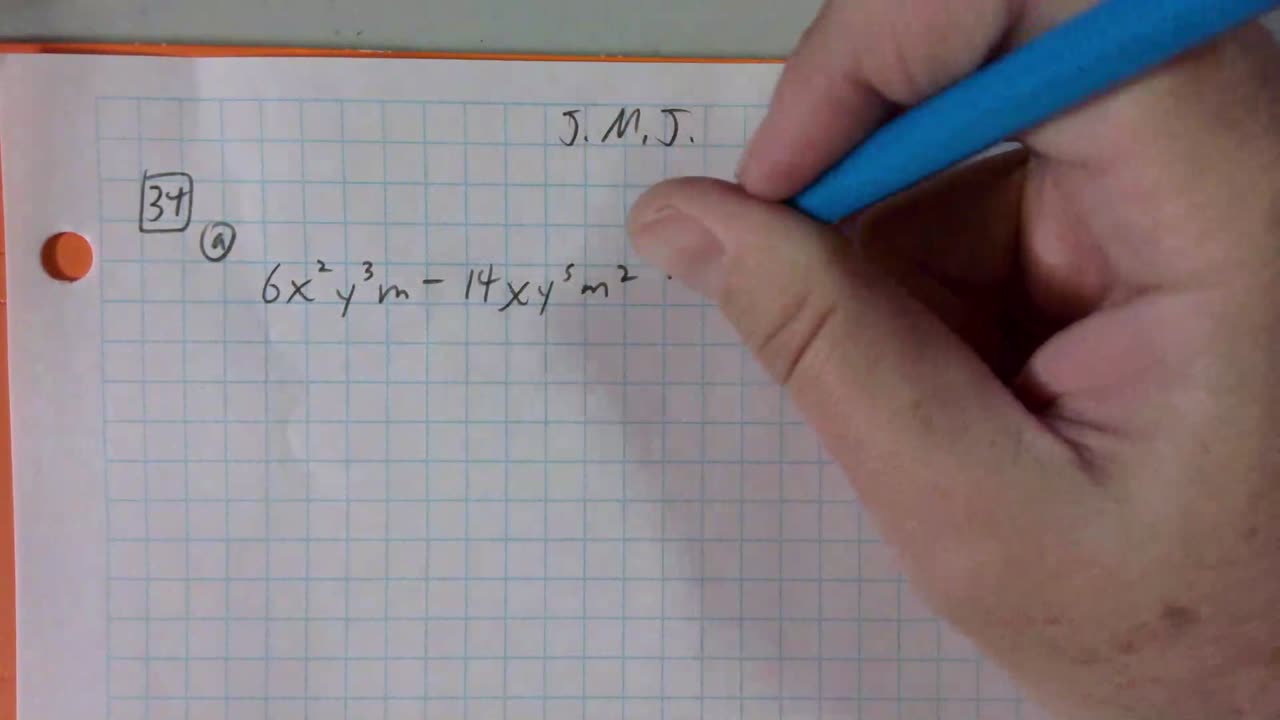 J.M.J.
34
a
6x²y³m - 14xy⁵m²